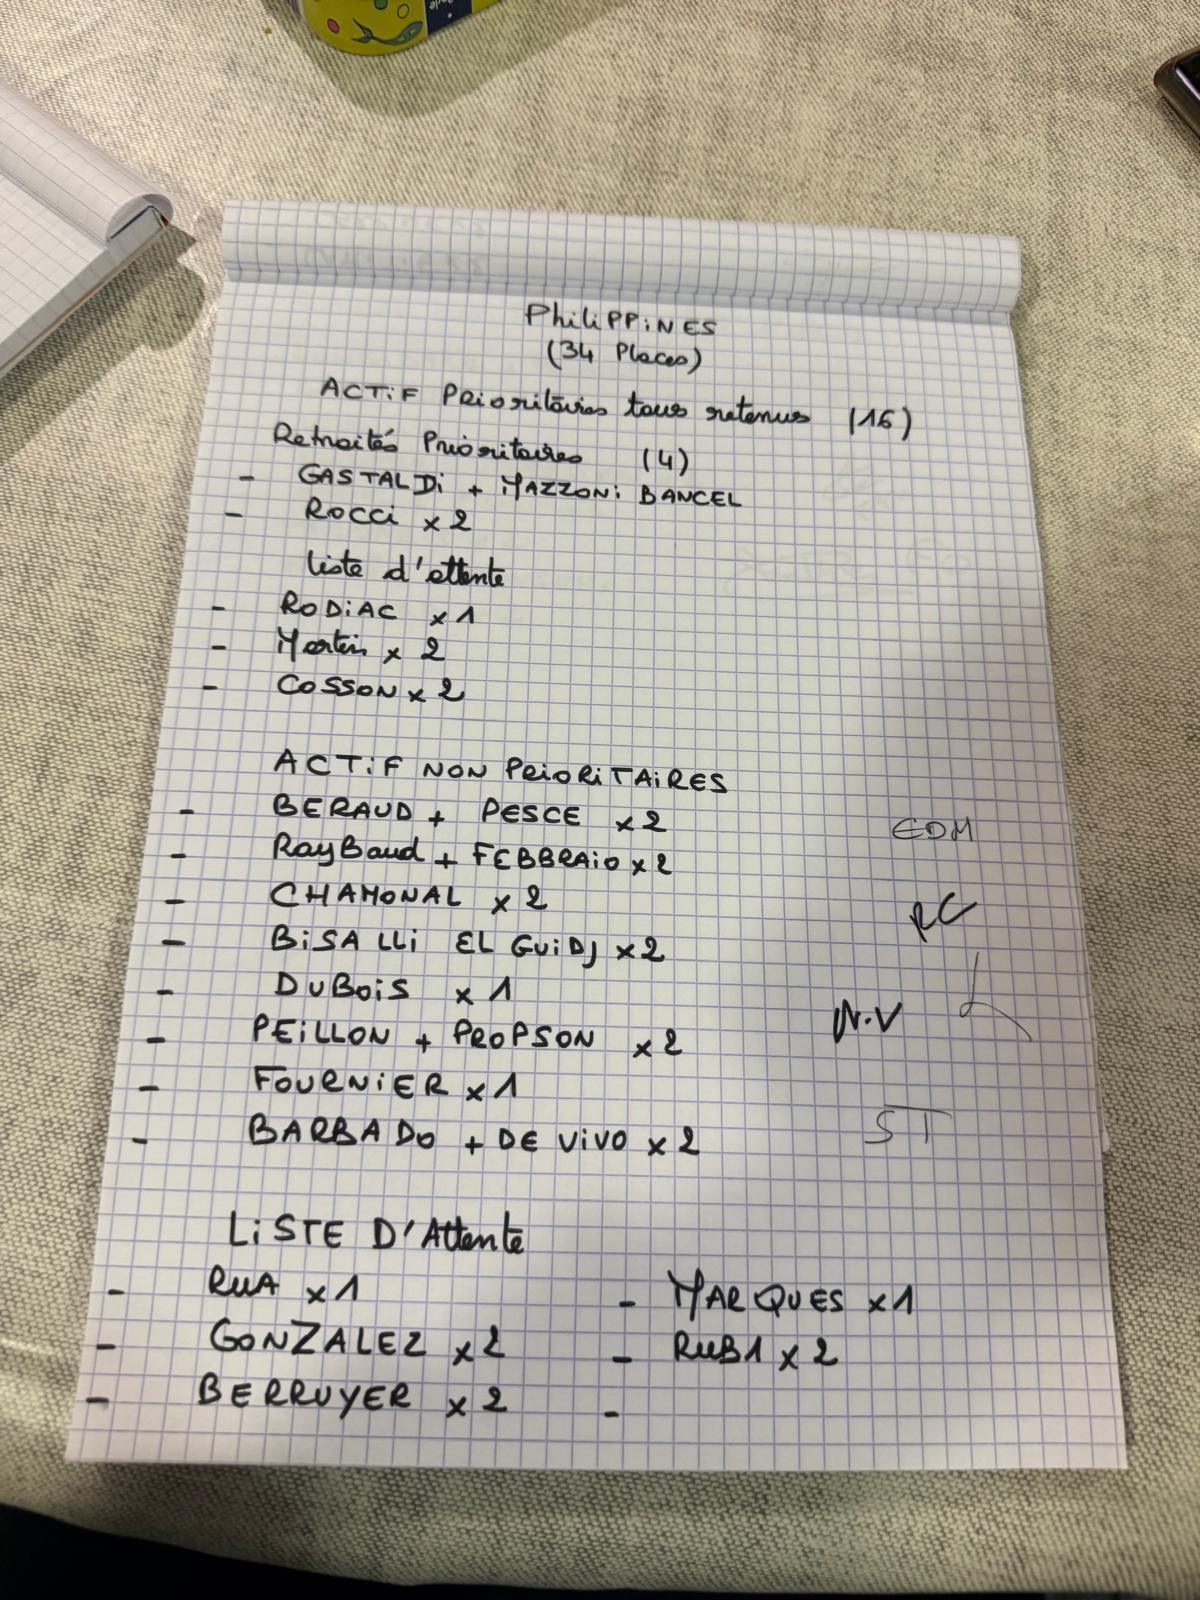 PhiliPPiNES
(34 Places)
ACTiF Prioritaires tous retenus (16)
Retraités Prioritaires (4)
- GASTALDi + MAZZONi BANCEL
- ROCCi x 2
liste d'attente
- RODiAC x 1
- Martin x 2
- COSSON x 2
ACTiF NON PRiORiTAiRES
- BERAUD + PESCE x 2
- RayBaud + FEBBRAiO x 2
- CHAMONAL x 2
- BiSALLi EL GUiDJ x 2
- DUBOiS x 1
- PEiLLON + PROPSON x 2
- FOURNiER x 1
- BARBADO + DE ViVO x 2
EDM
RC
N.V
ST
LiSTE D'Attente
- RUA x 1
- GONZALEZ x 2
- BERRUYER x 2
- MARQUES x 1
- RUB1 x 2
-